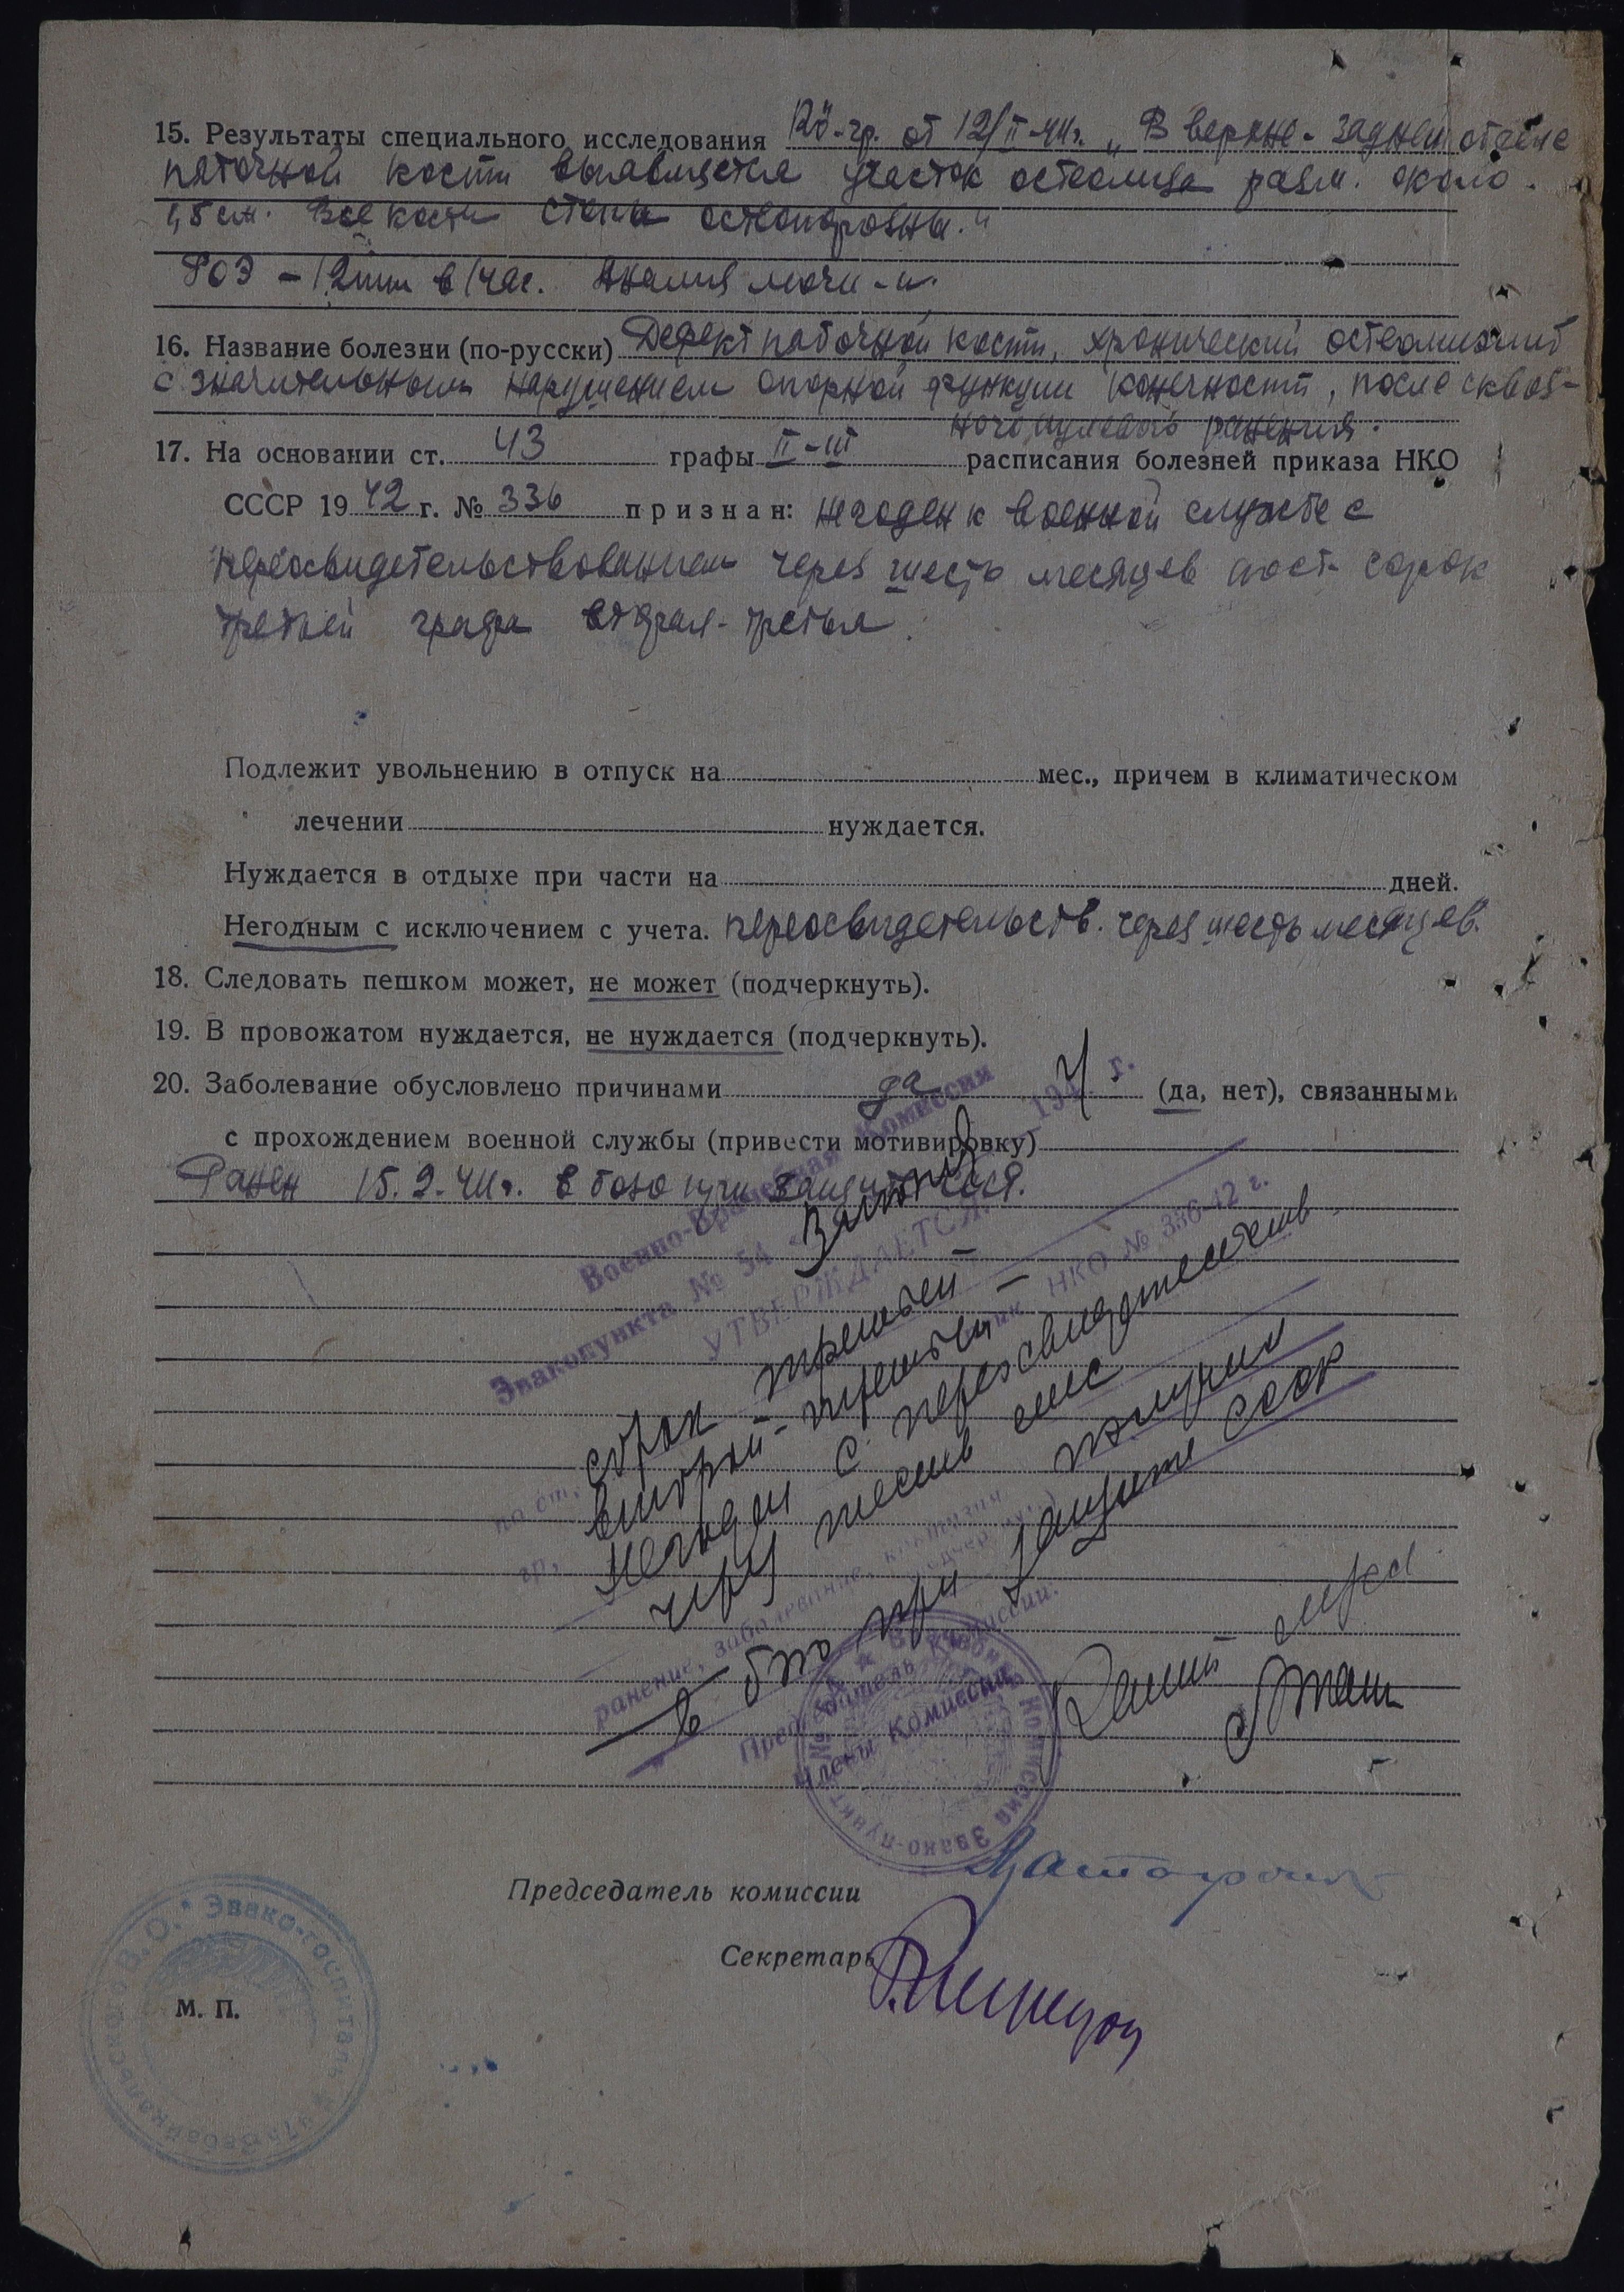 15. Результаты специального исследования Rö-гр. от 12/II-44г. „В верхне-заднем отделе
пяточной кости выявляется участок остеолиза разм. около
1,5 см. Все кости стопы остеопорозны."
РОЭ – 12 mm в 1 час. Анализ мочи - н.
16. Название болезни (по-русски) Дефект пяточной кости, хронический остеомиэлит
с значительным нарушением опорной функции конечности, после сквоз-
ного пулевого ранения.
17. На основании ст. 43 графы II-III расписания болезней приказа НКО
СССР 1942 г. № 336 признан: негоден к военной службе с
переосвидетельствованием через шесть месяцев по ст. сорок
третьей графа вторая-третья.
Подлежит увольнению в отпуск на мес., причем в климатическом
лечении нуждается.
Нуждается в отдыхе при части на дней.
Негодным с исключением с учета. переосвидетельств. через шесть месяцев.
18. Следовать пешком может, не может (подчеркнуть).
19. В провожатом нуждается, не нуждается (подчеркнуть).
20. Заболевание обусловлено причинами да (да, нет), связанными
с прохождением военной службы (привести мотивировку)
Ранен 15.9.41г. в бою при защите СССР.
Военно-Врачебная Комиссия
Эвакопункта № 54
194 4 г.
УТВЕРЖДАЕТСЯ
по ст. сорок третьей –
НКО № 336-42 г.
гр. второй-третьей –
Негоден с переосвидетельств.
через шесть мес
ранение, заболевание, контузия получил
в бою при защите СССР
Председатель Комиссии:
Члены Комиссии
Врачебная Комиссия Эвако-пункт №
Председатель комиссии
Секретарь
М. П.
Забайкальского В. О. * Эвако-госпиталь